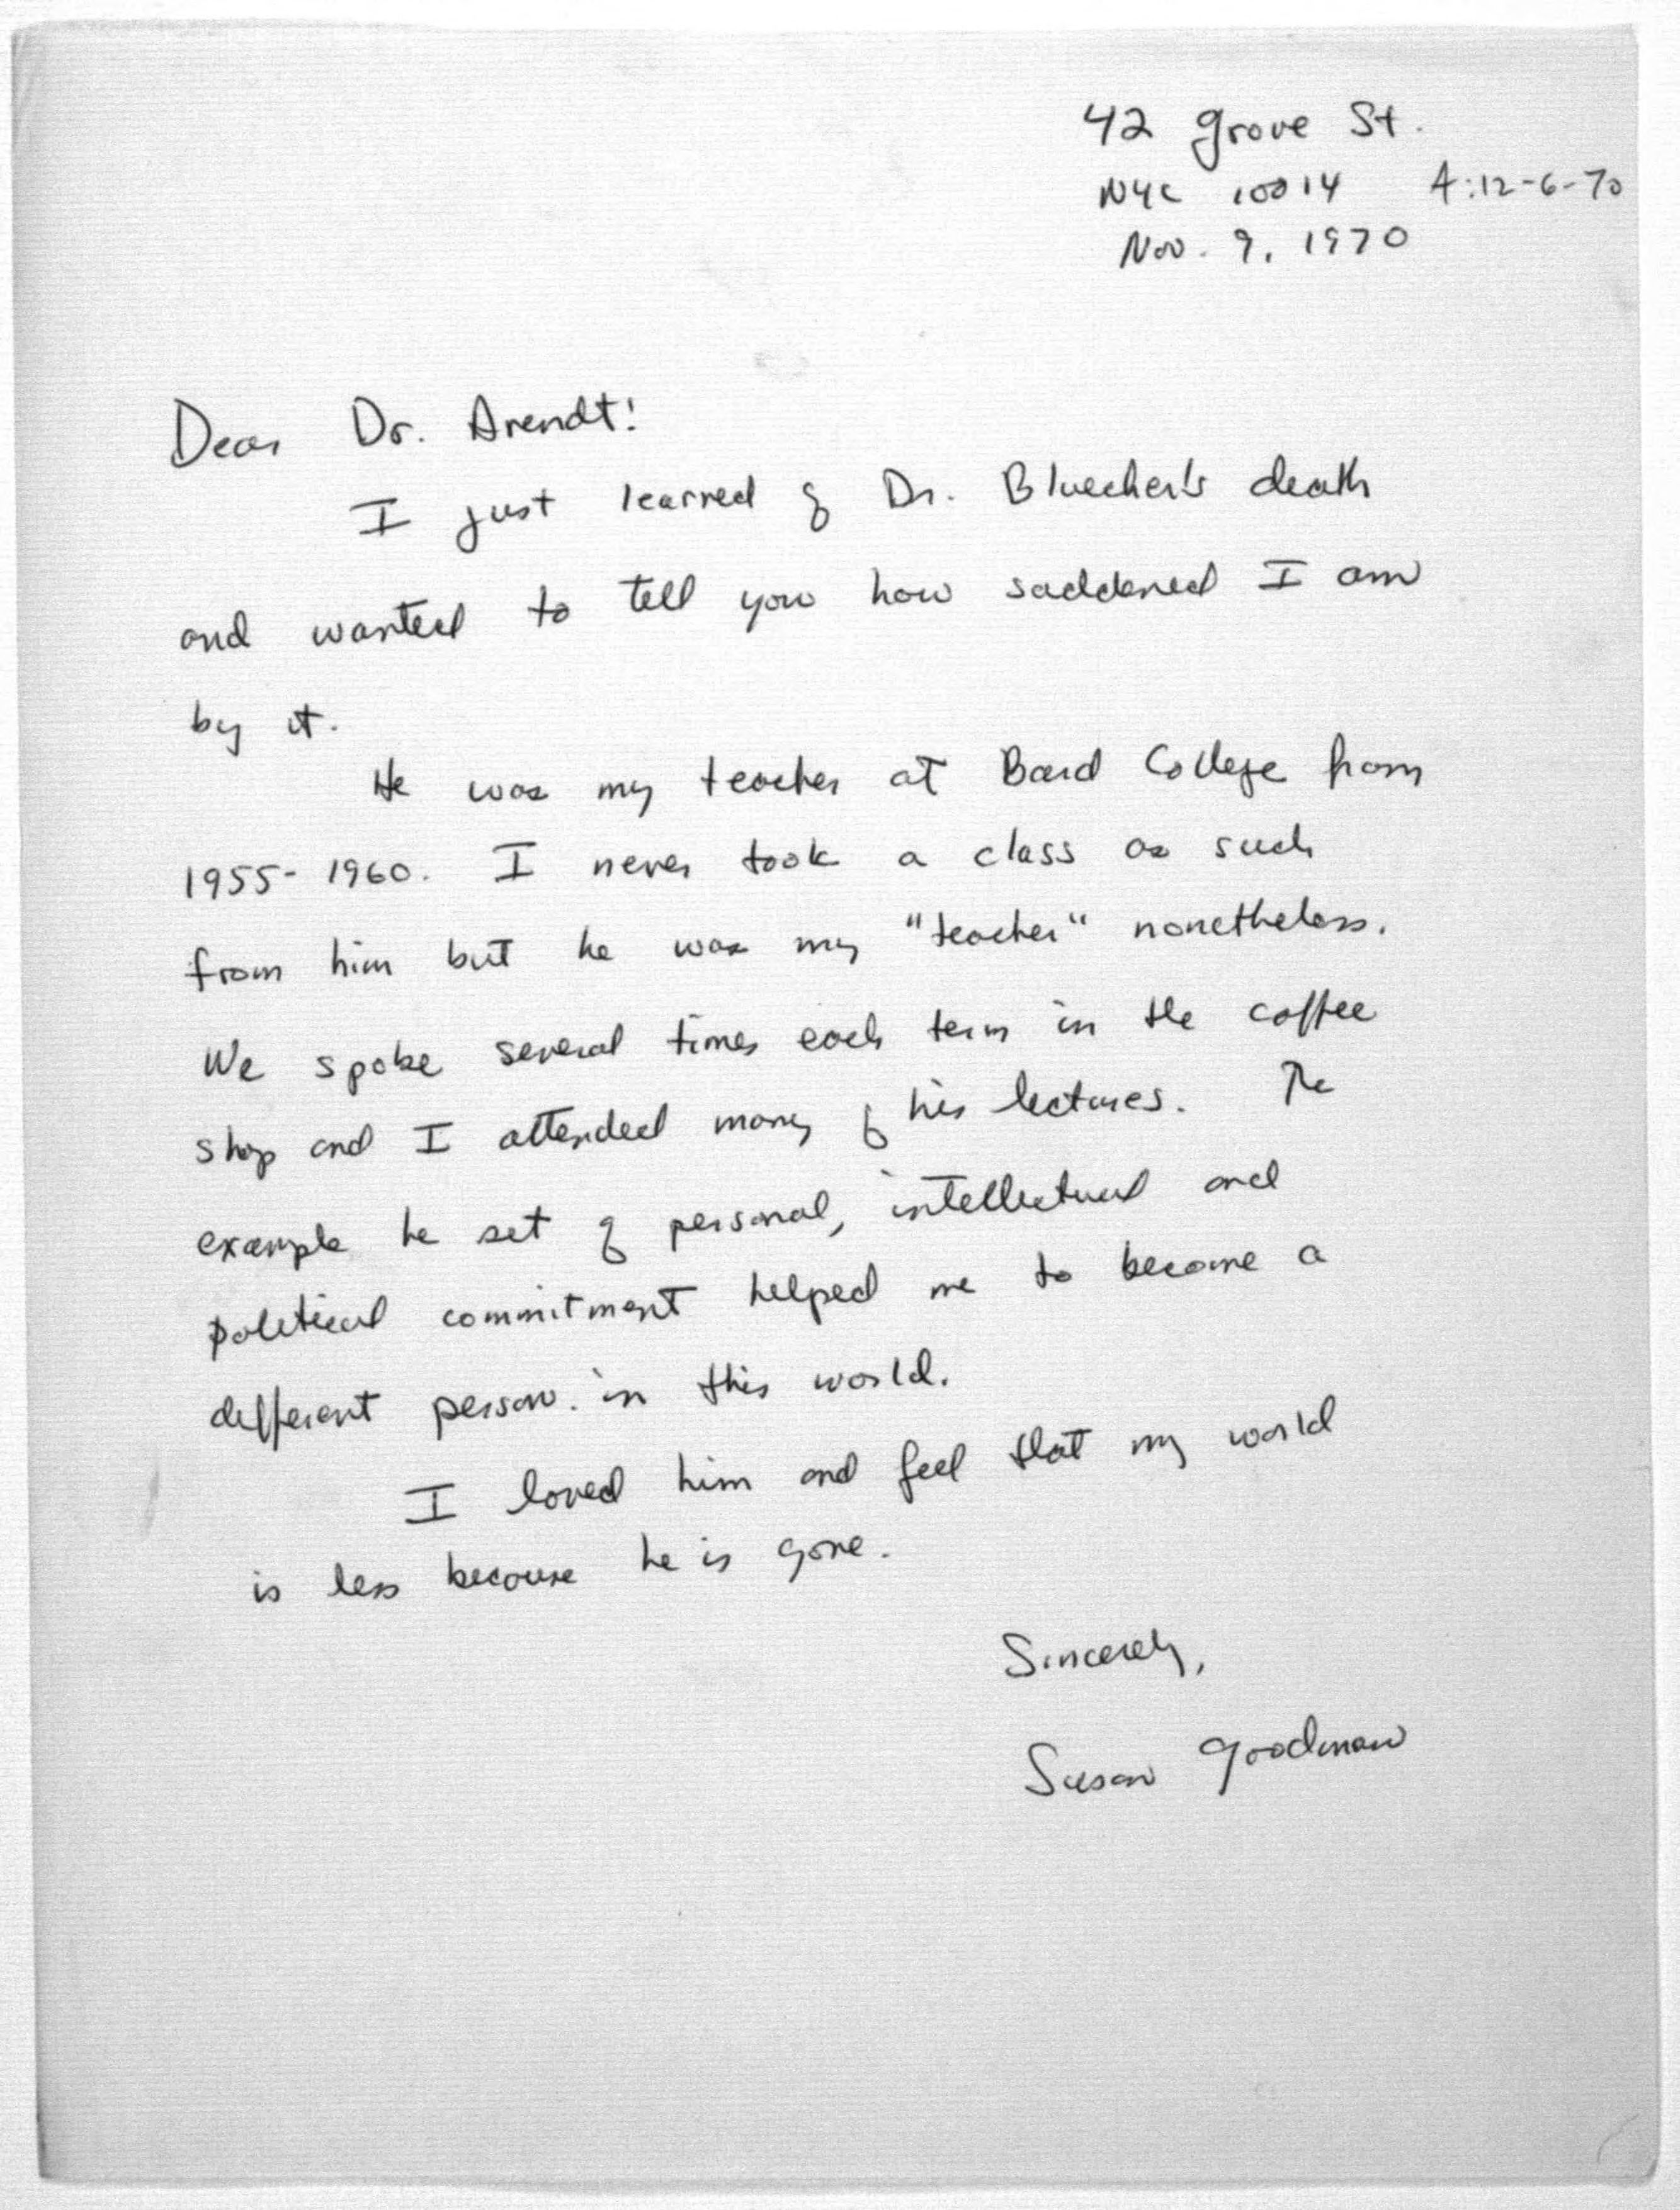 42 Grove St.
NYC 10014 A:12-6-70
Nov. 9, 1970
Dear Dr. Arendt!
I just learned of Dr. Bluecher's death
and wanted to tell you how saddened I am
by it.
He was my teacher at Bard College from
1955-1960. I never took a class as such
from him but he was my "teacher" nonetheless.
We spoke several times each term in the coffee
shop and I attended many of his lectures. The
example he set of personal, intellectual and
political commitment helped me to become a
different person in this world.
I loved him and feel that my world
is less because he is gone.
Sincerely,
Susan Goodman